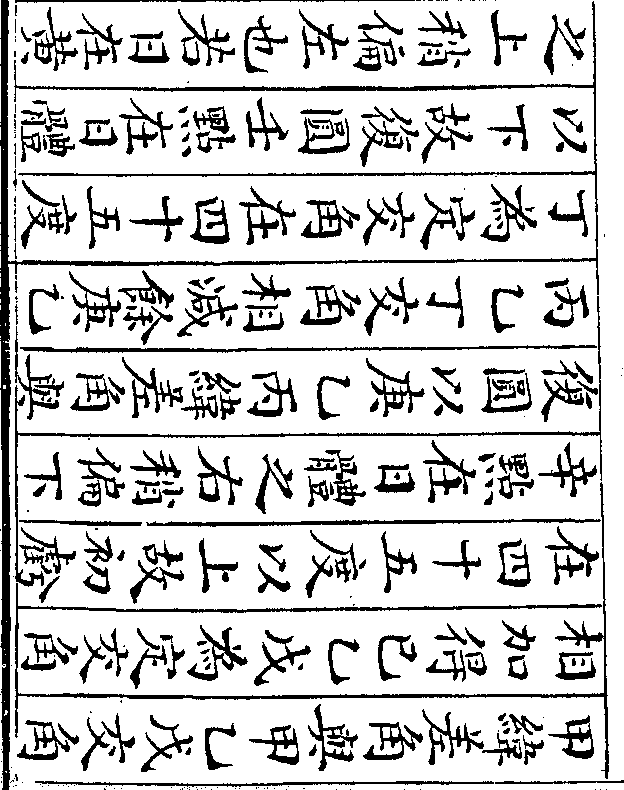 甲緯差角與甲乙戊交角
相加得己乙戊為定交角
在四十五度以上故初虧
辛點在日體之右稍偏下
復圓以庚乙丙緯差角與
丙乙丁交角相減餘庚乙
丁為定交角在四十五度
以下故復圓壬點在日體
之上稍偏左也若日在黃